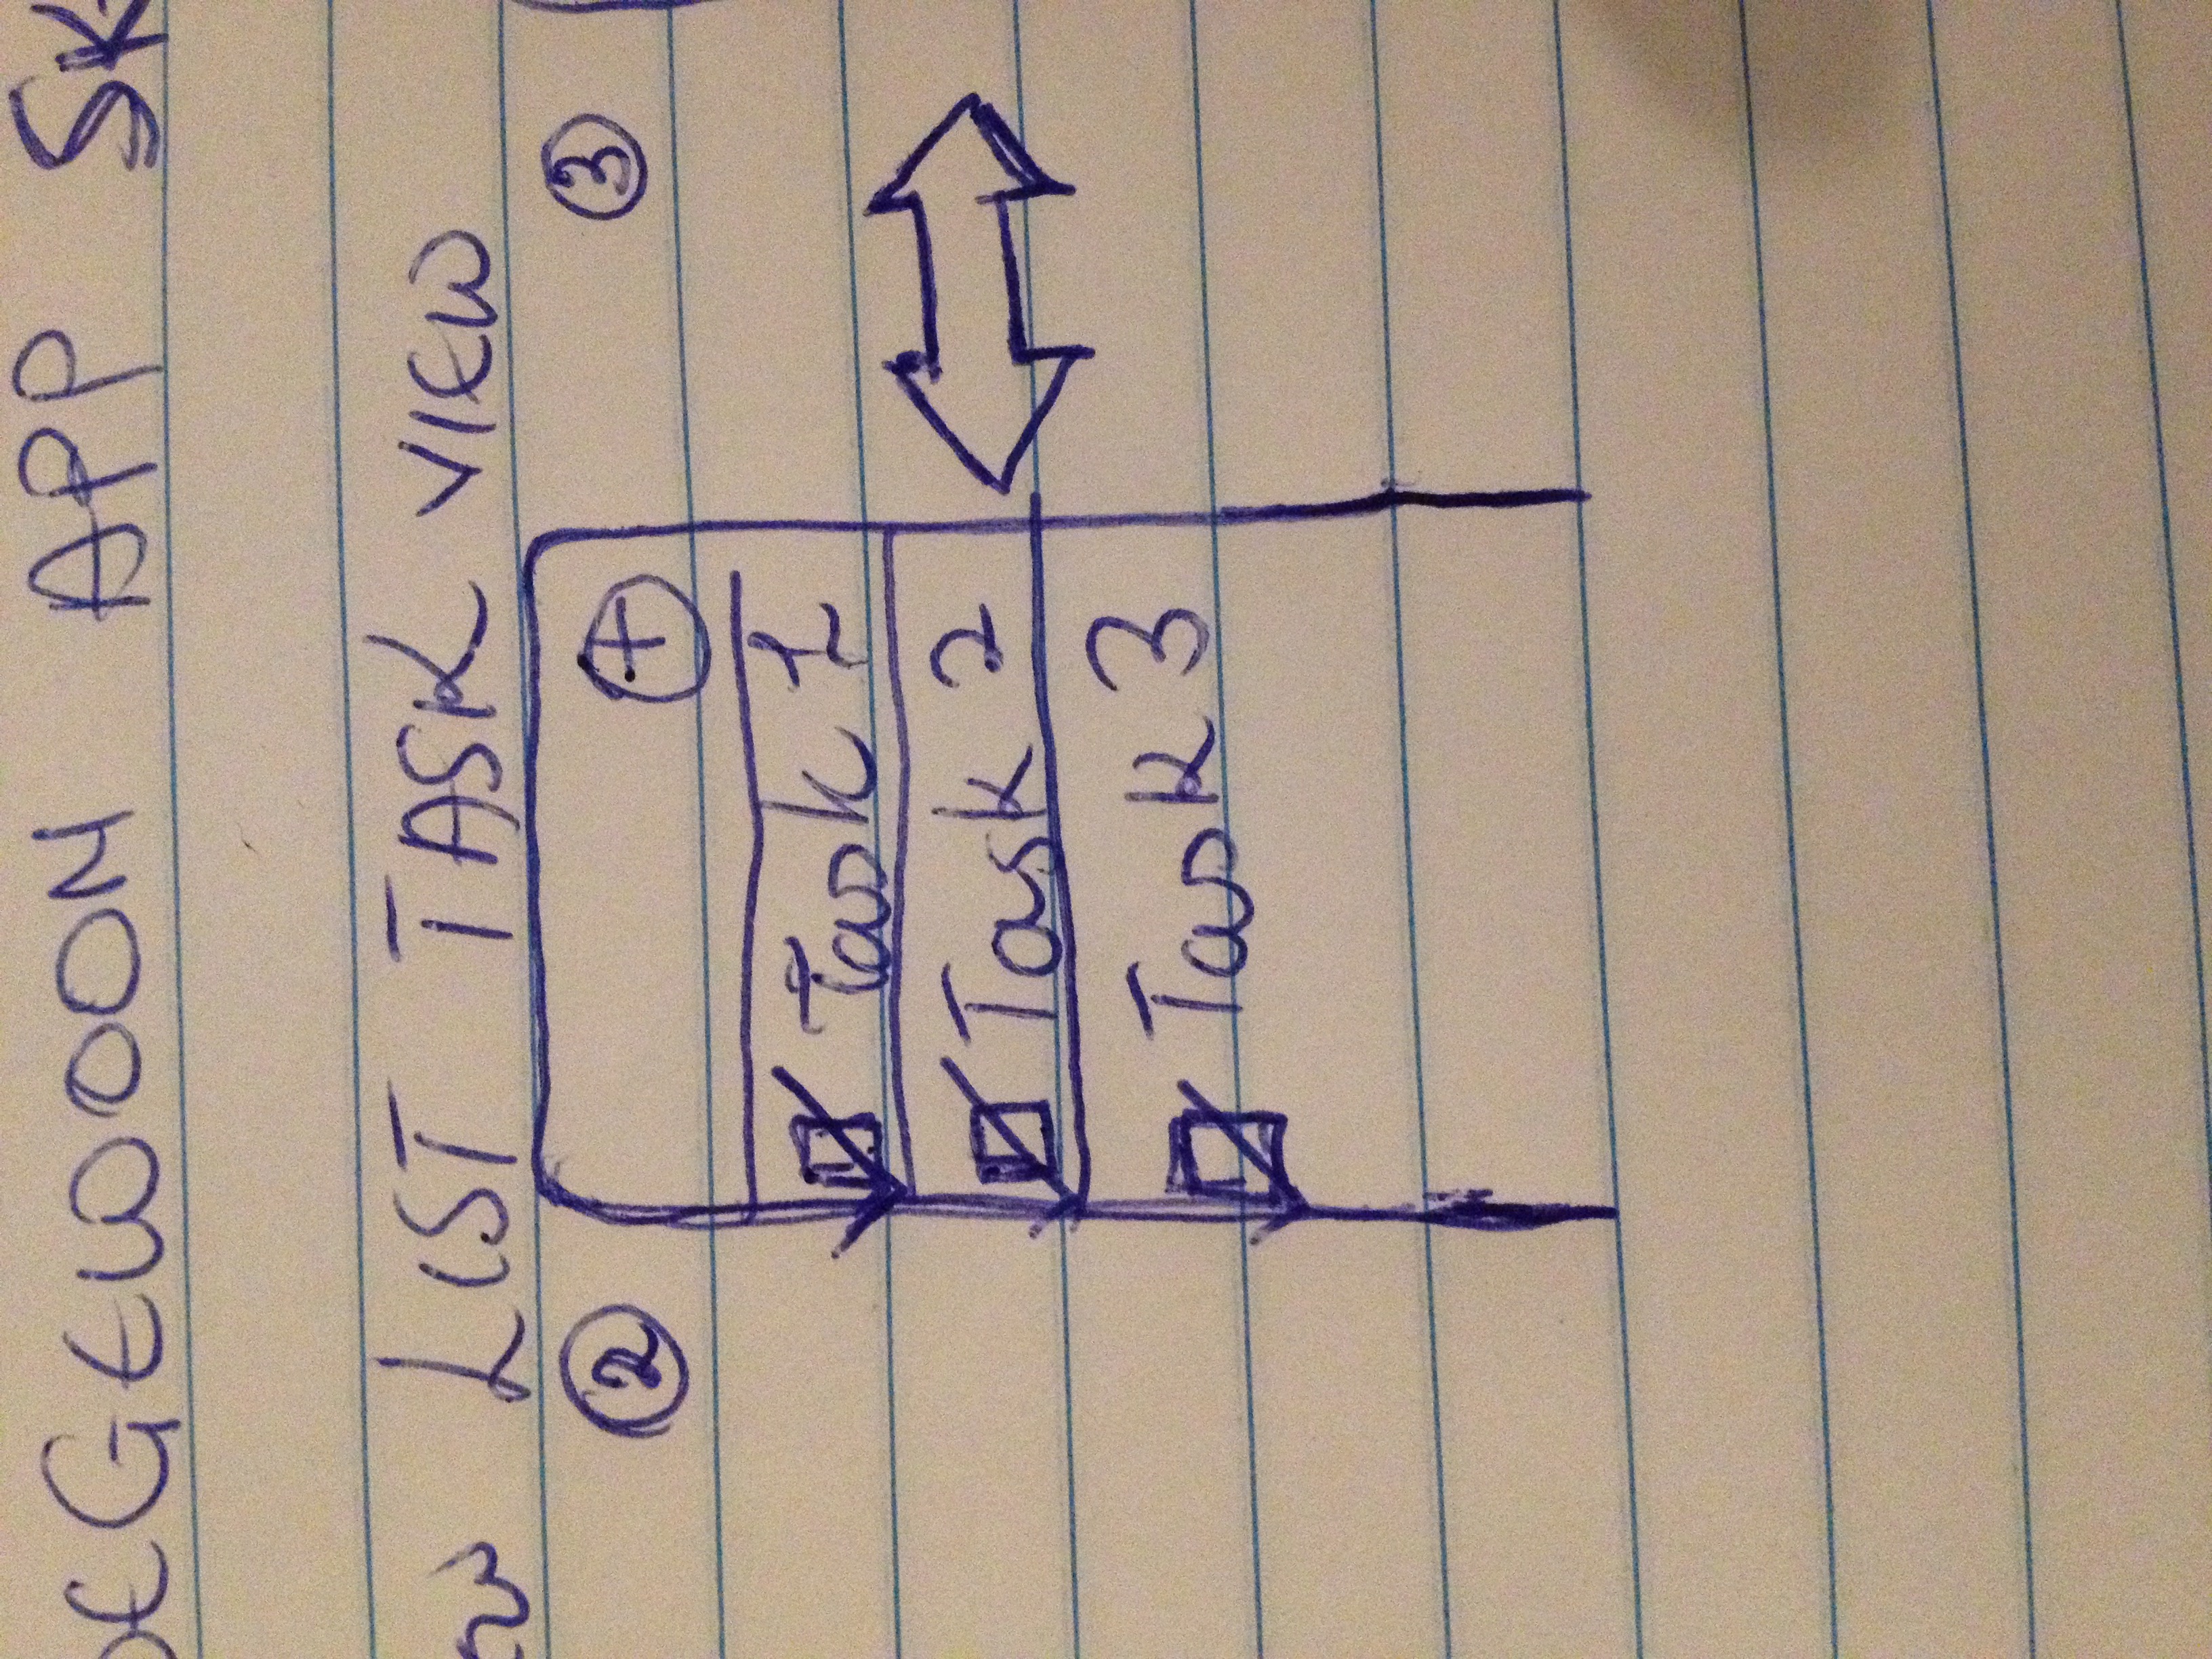 DEGEWOON APP SK
LIST TASK VIEW
2
3
+
Task 1
Task 2
Task 3